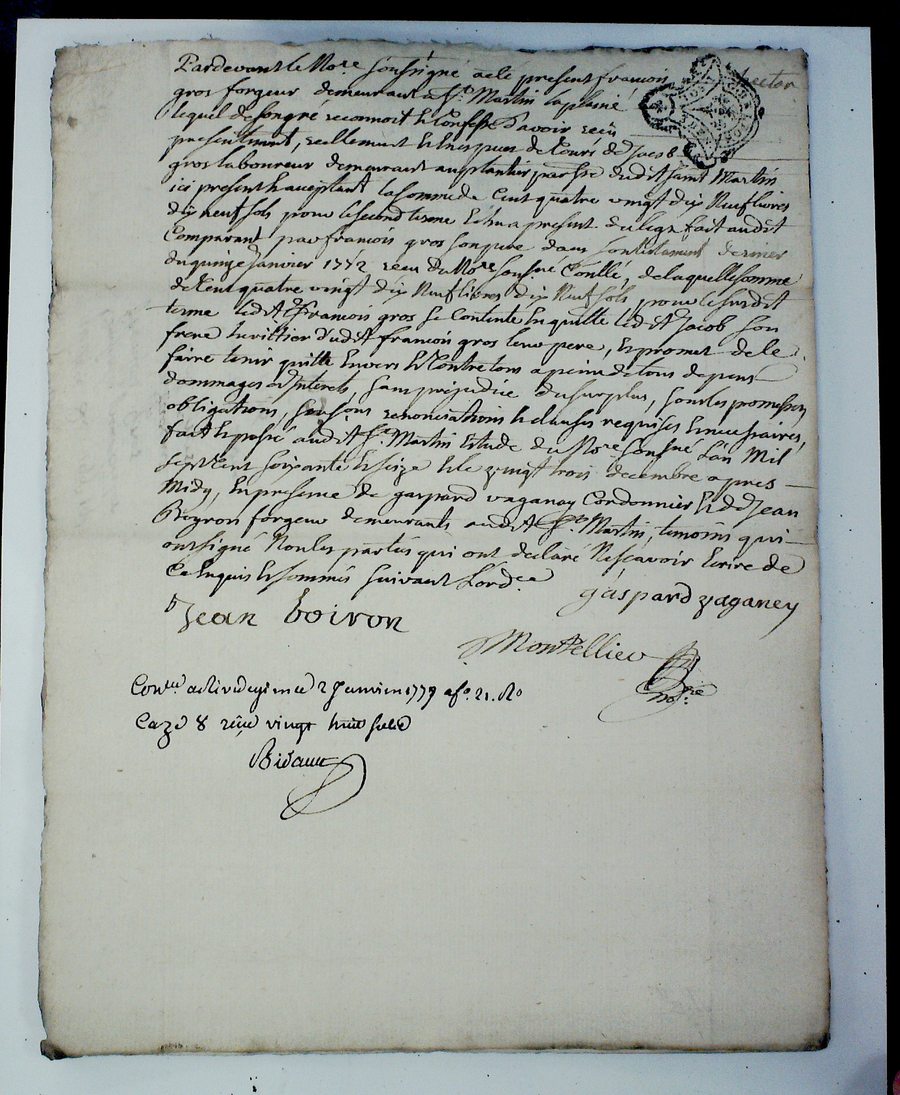 Pardevant le No.re soussigné a été present françois
gros forgeur demeurant a St. Martin la plaine
lequel de son gré reconnoit et Confesse d'avoir reçu
presentement, reellement et en espèces de Cours de Jacob
gros laboureur demeurant au plantier, parsse dudit saint Martin
ici present et acceptant la somme de Cent quatre vingt dix Neuf livres
dix neuf sols pour le second terme Echu a present du legs fait audit
Comparant par françois gros son pere dans son testament dernier
du quinze Janvier 1772 reçu du No.re sousné Conllé, de laquelle somme
de Cent quatre vingt dix Neuf livres dix Neuf sols pour le susdit
terme ledit françois gros se Contente En quitte ledit Jacob son
frere heritier d'udit francois gros leur pere, Et promet de le
faire tenir quitte Envers Et Contre tous a peine de tous depens
dommages et Interets, sans prejudice du surplus, sous les promesses,
obligations, renonciations et clauses requises Et necessaires,
fait Et passé audit St. Martin Etude du No.re sousné L'an Mil
sept Cent soixante et seize et le vingt trois decembre apres
Midy, En presence de gaspard vaganay Cordonnier Et de Jean
Boyron forgeur demeurants audit St. Martin, temoins qui
ont signé Non les parties qui ont declaré Ne scavoir Ecrire de
Ce Enquis Et sommés suivant L'ord.ce
gaspard vaganey
Jean boiron
Montellier
No.re
Con.llé a rivedegier ce 2 Janvier 1777 f.o 21. R.o
Caze 8 reçu vingt huit sols
Bidaut